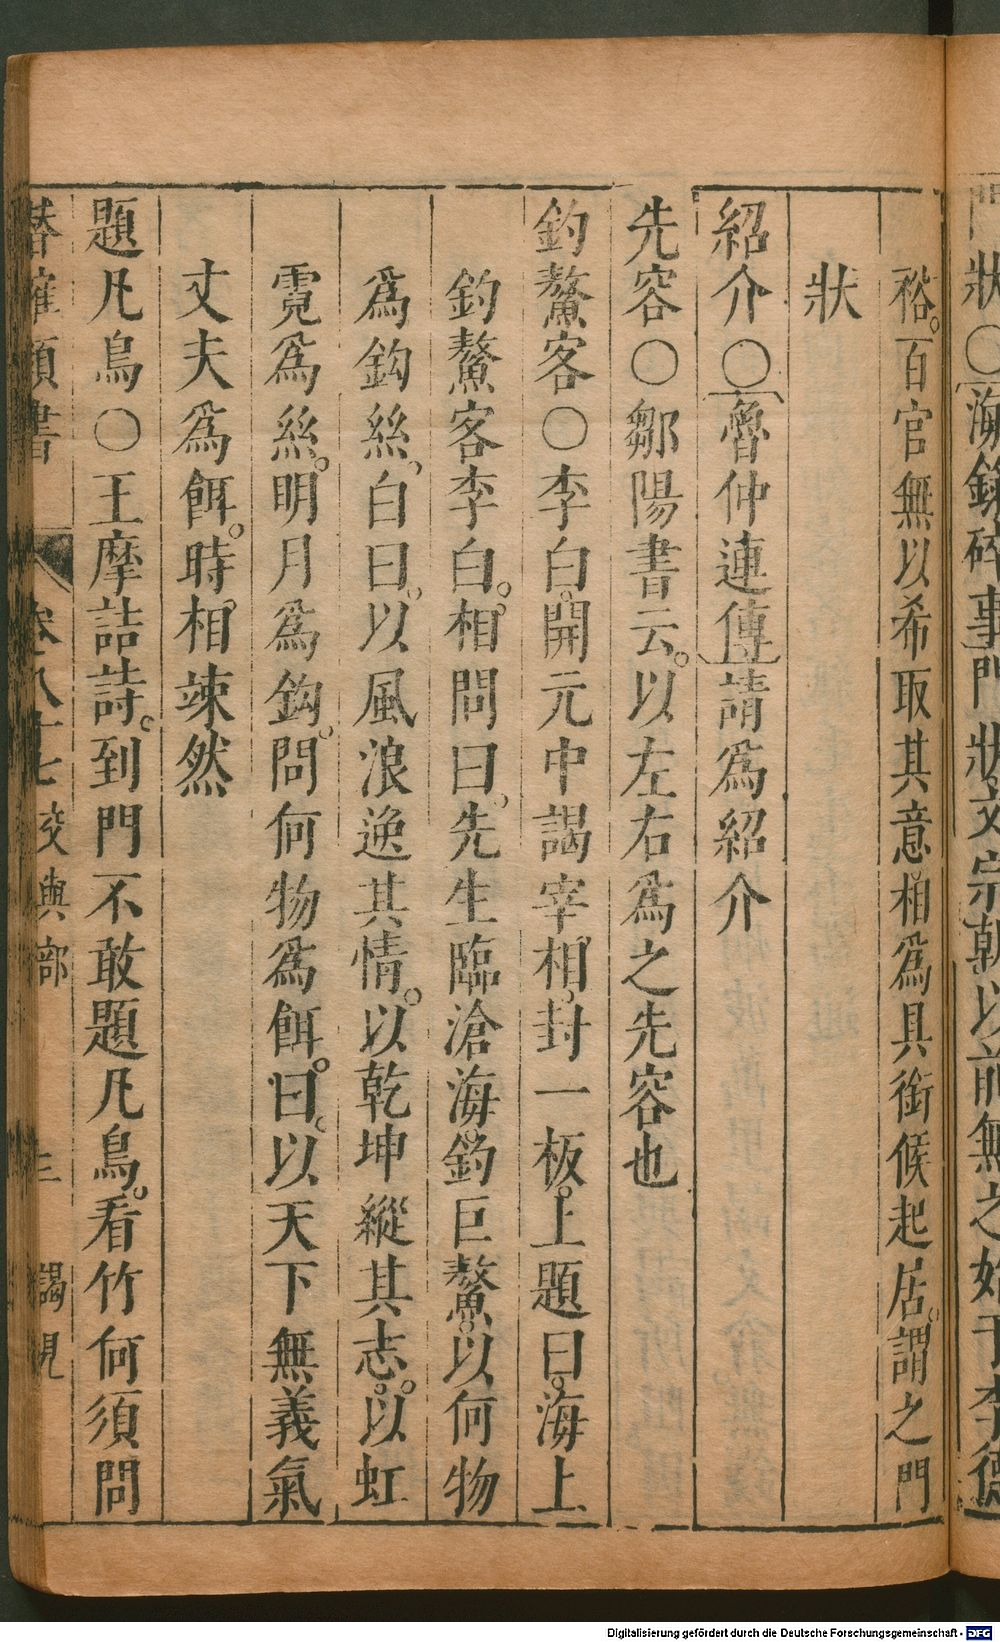 狀○海錄碎事門狀文宗朝以前無之始于李德
裕。百官無以希取其意相爲具銜候起居。謂之門
狀
紹介○魯仲連傳請爲紹介
先容○鄒陽書云。以左右爲之先容也
釣鰲客○李白。開元中謁宰相。封一板。上題曰。海上
釣鰲客李白。相問曰。先生臨滄海。釣巨鰲。以何物
爲鈎絲。白曰。以風浪逸其情。以乾坤縱其志。以虹
霓爲絲。明月爲鈎。問何物爲餌。曰。以天下無義氣
丈夫爲餌。時相竦然
題凡鳥○王摩詰詩。到門不敢題凡鳥。看竹何須問
卷八十七 交與部 三 謁見
Digitalisierung gefördert durch die Deutsche Forschungsgemeinschaft - DFG